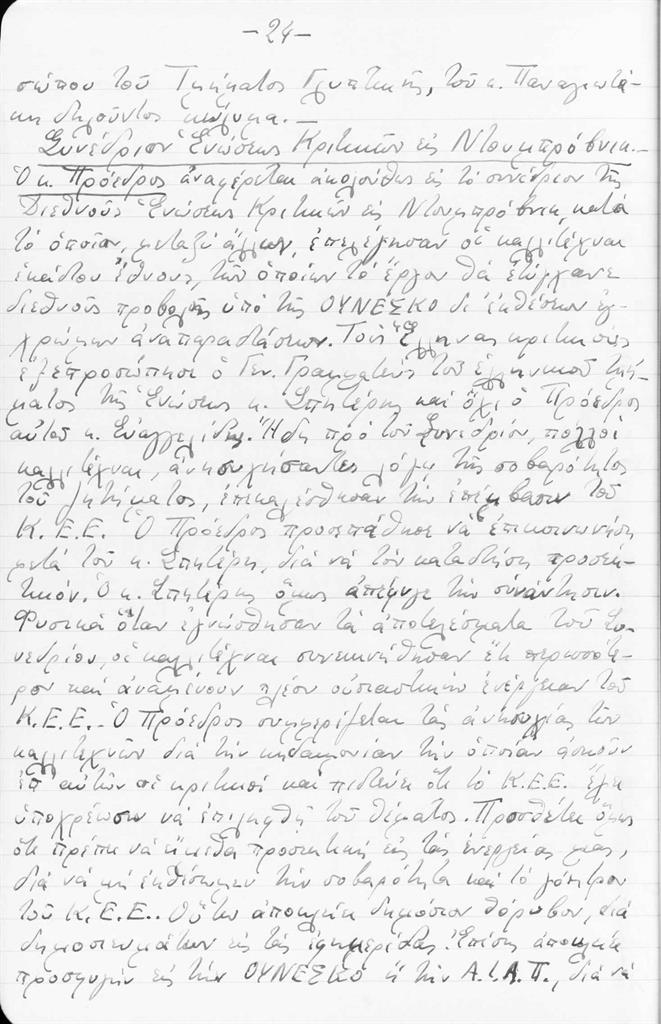 -24-
σώπου τοῦ Τμήματος Γλυπτικῆς, τοῦ κ. Παναγιωτά-
κη δηλοῦντος κώλυμα.-
Συνέδριον Ἑνώσεως Κριτικῶν εἰς Ντουμπρόβνικ.-
Ὁ κ. Πρόεδρος ἀναφέρεται ἀκολούθως εἰς τό συνέδριον τῆς
Διεθνοῦς Ἑνώσεως Κριτικῶν εἰς Ντουμπρόβνικ, κατά
τό ὁποῖον, μεταξύ ἄλλων, ἐπελέγησαν οἱ καλλιτέχναι
ἑκάστου ἔθνους, τῶν ὁποίων τό ἔργον θά ἐτύγχανε
διεθνοῦς προβολῆς ὑπό τῆς ΟΥΝΕΣΚΟ δι' ἐκθέσεων ἐγ-
χρώμων ἀναπαραστάσεων. Τούς Ἕλληνας κριτικούς
ἐξεπροσώπησε ὁ Γεν. Γραμματεύς τοῦ ἑλληνικοῦ τμή-
ματος τῆς Ἑνώσεως κ. Σπητέρης καί ὄχι ὁ Πρόεδρος
αὐτοῦ κ. Εὐαγγελίδης. Ἤδη πρό τοῦ Συνεδρίου, πολλοί
καλλιτέχναι, ἀνησυχήσαντες λόγῳ τῆς σοβαρότητος
τοῦ ζητήματος, ἐπεκαλέσθησαν τήν ἐπέμβασιν τοῦ
Κ.Ε.Ε. Ὁ Πρόεδρος προσεπάθησε νά ἐπικοινωνήσῃ
μετά τοῦ κ. Σπητέρη, διά νά τόν καταστήσῃ προσεκ-
τικόν. Ὁ κ. Σπητέρης ὅμως ἀπέφυγε τήν συνάντησιν.
Φυσικά ὅταν ἐγνώσθησαν τά ἀποτελέσματα τοῦ Συ-
νεδρίου, οἱ καλλιτέχναι συνεκινήθησαν ἔτι περισσότε-
ρον καί ἀναμένουν πλέον οὐσιαστικήν ἐνέργειαν τοῦ
Κ.Ε.Ε.- Ὁ Πρόεδρος συμμερίζεται τάς ἀνησυχίας τῶν
καλλιτεχνῶν διά τήν κηδαιμονίαν τήν ὁποίαν ἀσκοῦν
ἐπ' αὐτῶν οἱ κριτικοί καί πιστεύει ὅτι τό Κ.Ε.Ε. ἔχει
ὑποχρέωσιν νά ἐπιληφθῇ τοῦ θέματος. Προσθέτει ὅμως
ὅτι πρέπει νά εἴμεθα προσεκτικοί εἰς τάς ἐνεργείας μας,
διά νά μή ἐκθέσωμεν τήν σοβαρότητα καί τό γόητρον
τοῦ Κ.Ε.Ε.. Οὕτω ἀποκλείει δημόσιον θόρυβον, διά
δημοσιευμάτων εἰς τάς ἐφημερίδας. Ἐπίσης ἀποκλείει
προσφυγήν εἰς τήν ΟΥΝΕΣΚΟ ἤ τήν Α.Ι.Α.Π., διά νά